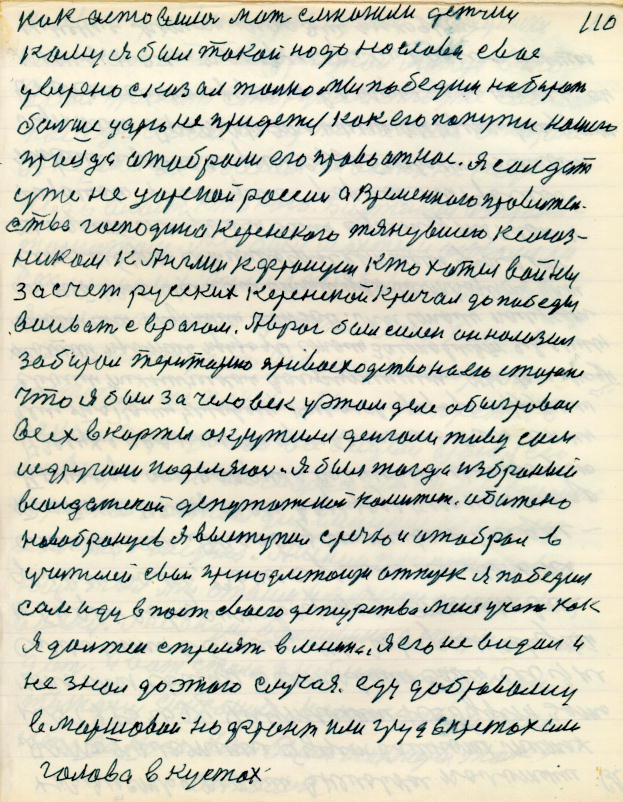 110
как оставила мат с маютли детми
кому я был такой надь на слова свае
уверено сказал толко мы победим набират
болше царь не придетца как его попутки нашего
прийда отобрали его право отнас. Я солдат
уже не царской россии а Временного правител-
ства господина Керенского тянувшего ксоюз-
никам к Англии к франции кто хотел войны
за счет русских Керенской кричал до победы
воиват с врагом. А враг был силен он наложил
забирал територию превосходство на его стороне
Что я был за человек у этом деле обыгровал
всех в карты окрутили денгами живу сам
и с другими поделягои. Я был тогда избраный
в солдатской депутатской комитет. обижено
новобранцев я выступил с речю и отобрал в
учителей свай принодлежащи отпуск я победил
сам иду в пост своего дежурства меня учат как
я должен стрелят в ленина. Я его не видал и
не знал до этого случая. еду доброволиц
в маршовой на фронт или груд в крестах или
голова в кустах